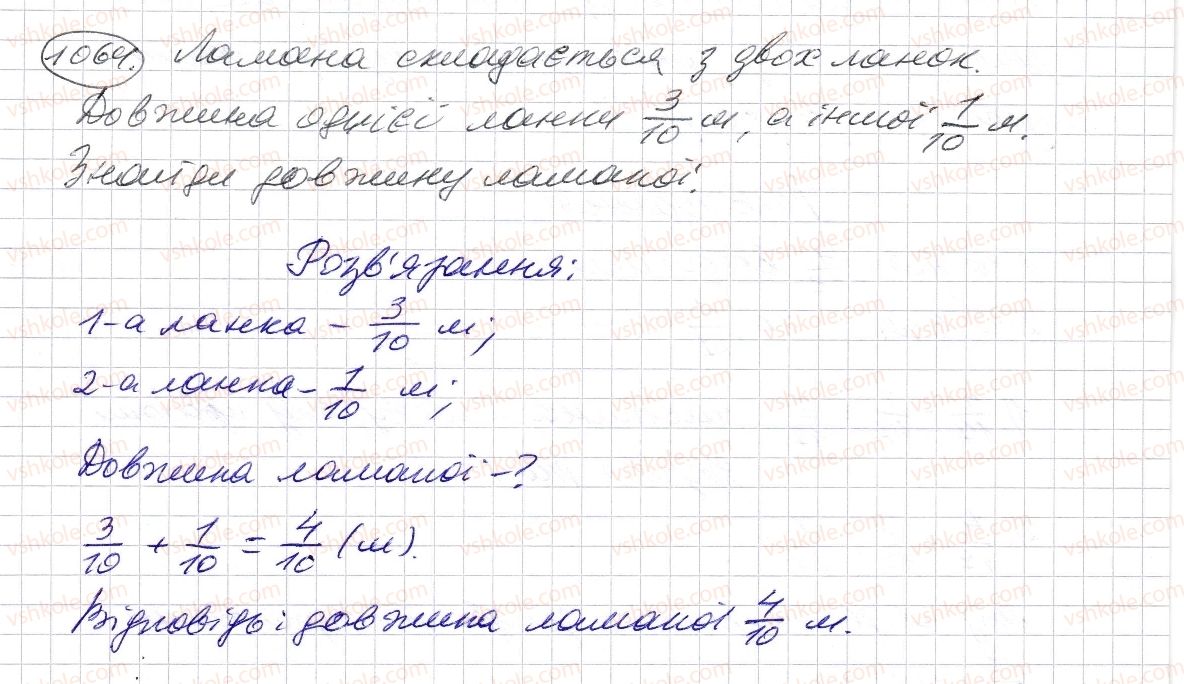 1064. Ламана складається з двох ланок.
Довжина однієї ланки 3/10 м, а іншої 1/10 м.
Знайди довжину ламаної.
Розв'язання:
1-а ланка - 3/10 м;
2-а ланка - 1/10 м;
Довжина ламаної - ?
3/10 + 1/10 = 4/10 (м).
Відповідь: довжина ламаної 4/10 м.
vshkole.com